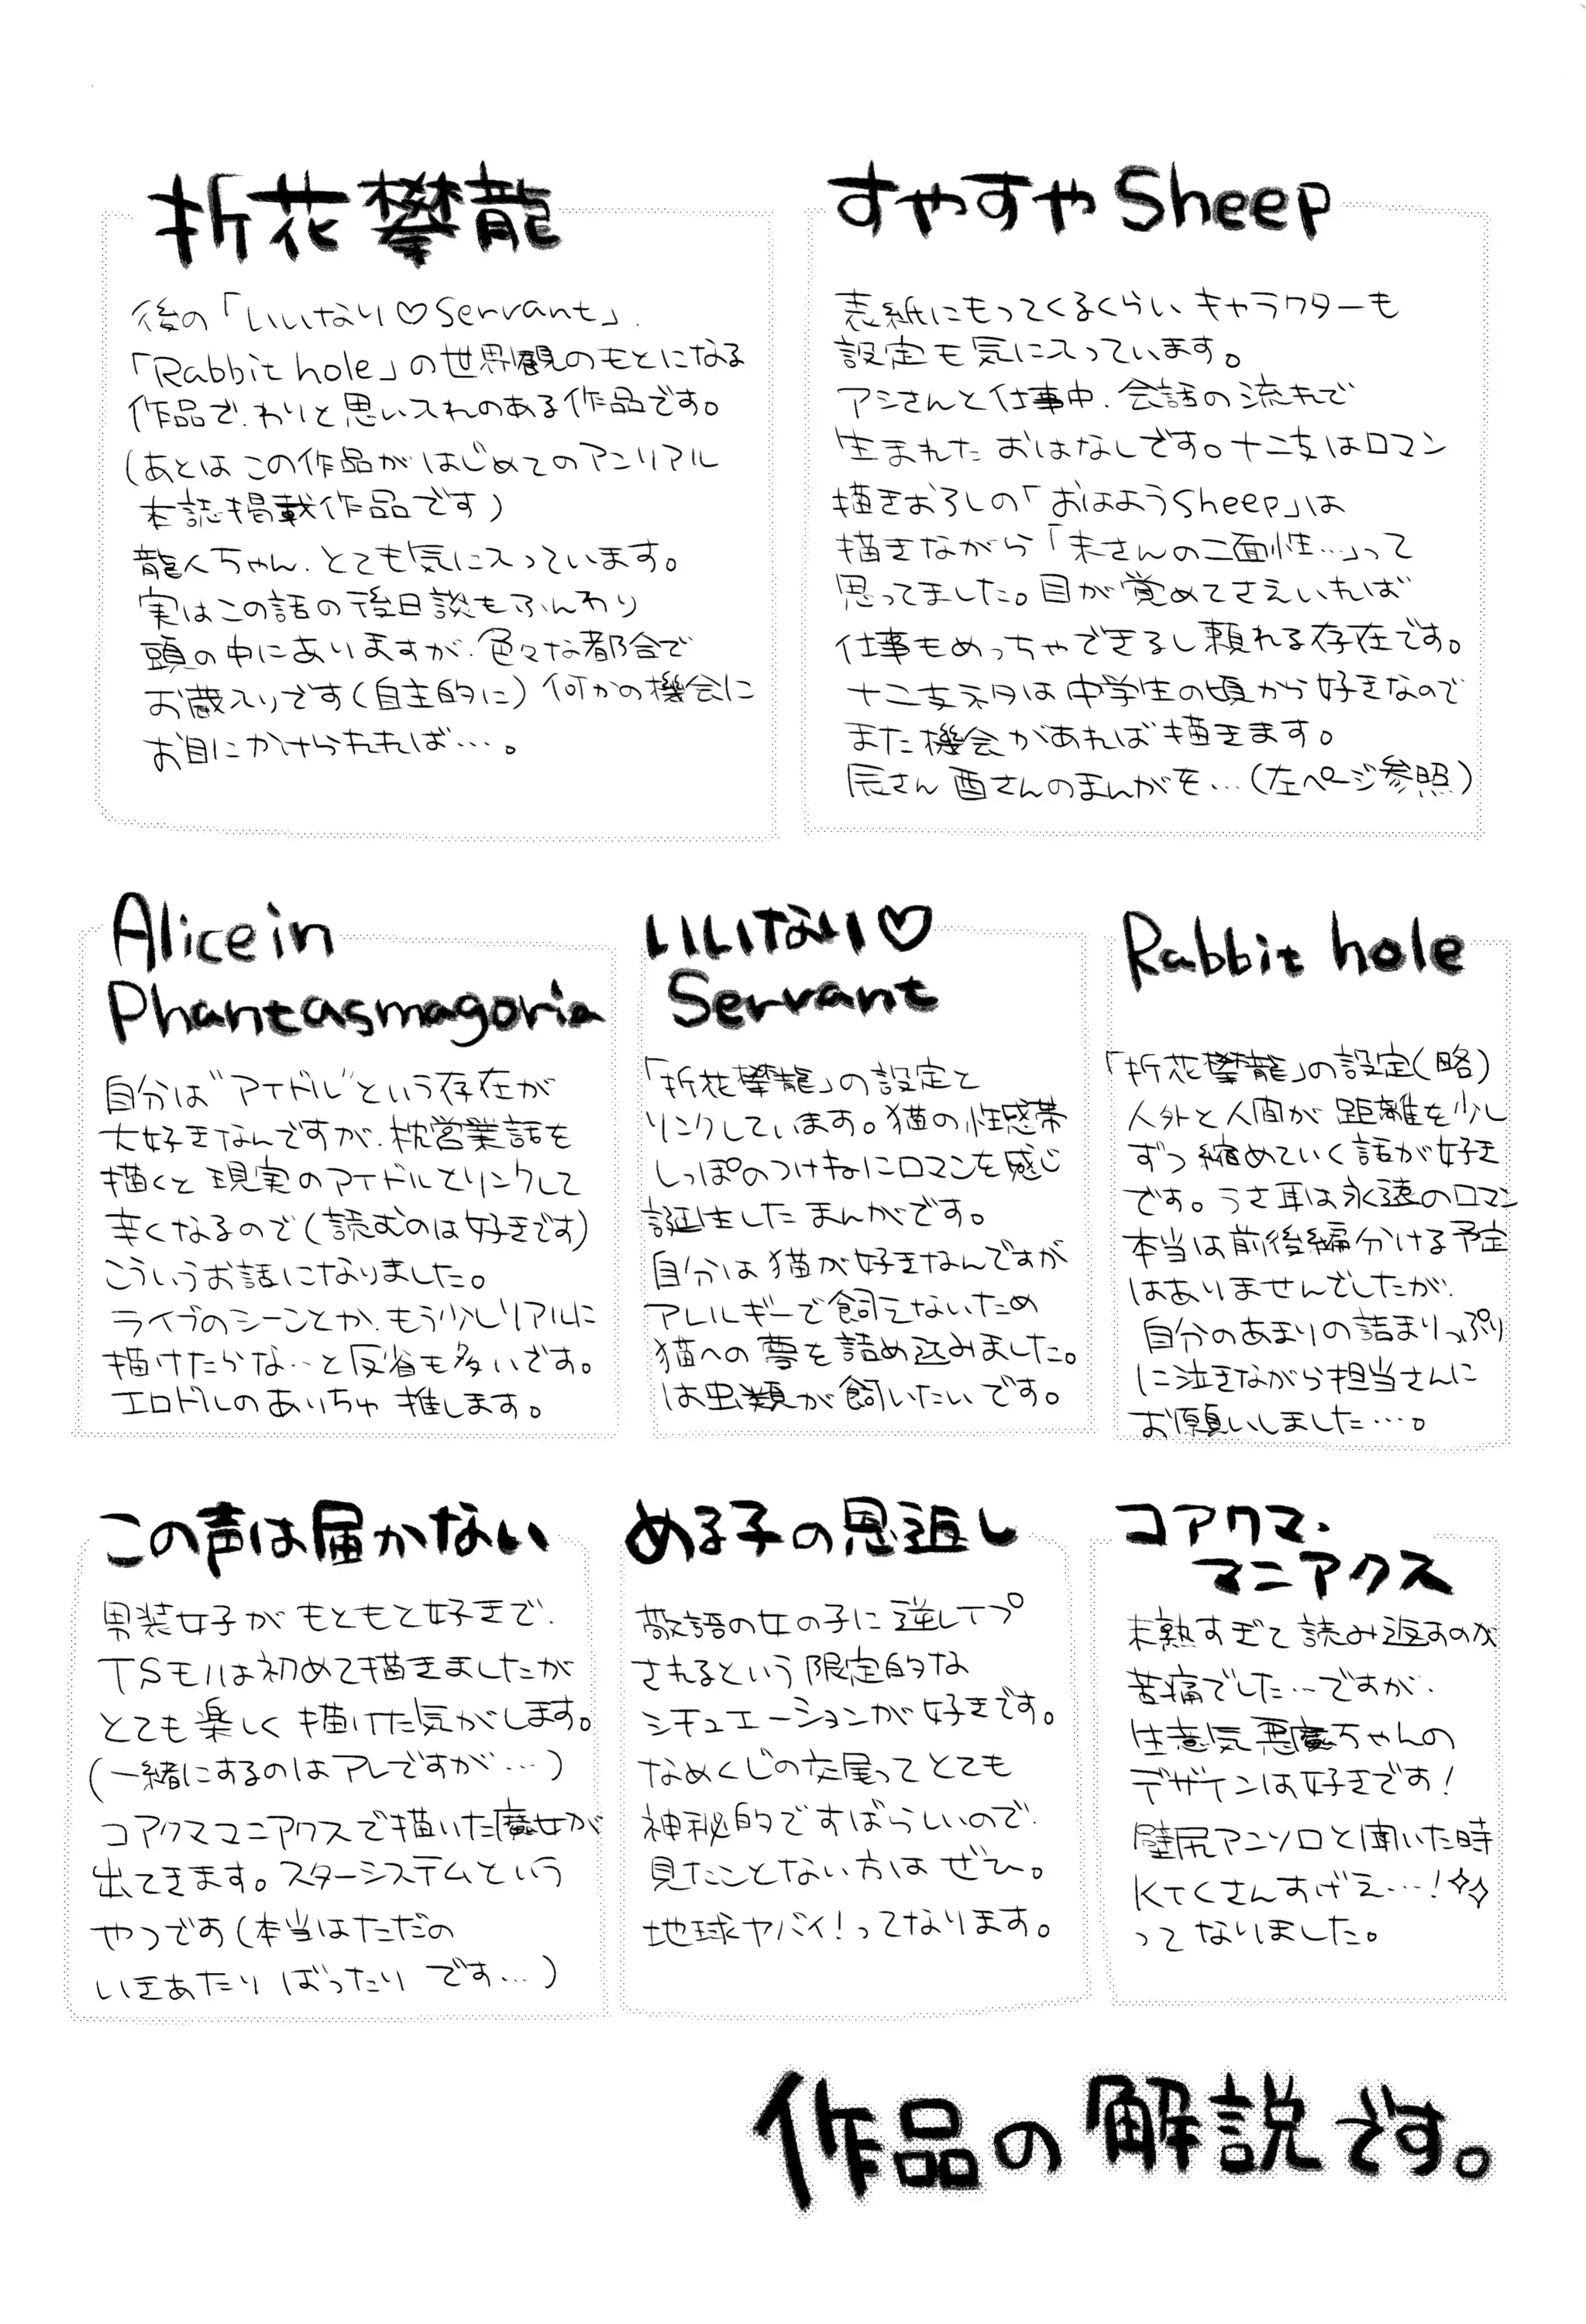 折花攀龍
後の「いいなり♡Servant」、
「Rabbit hole」の世界観のもとになる
作品で、わりと思い入れのある作品です。
(あとは この作品が はじめてのアンリアル
本誌掲載作品です)
龍人ちゃん、とても気に入っています。
実はこの話の後日談もふんわり
頭の中にありますが、色々な都合で
お蔵入りです(自主的に) 何かの機会に
お目にかけられれば…。
すやすやSheep
表紙にもってくるくらい キャラクターも
設定も気に入っています。
アシさんと仕事中、会話の流れで
生まれた おはなしです。十二支はロマン
描きおろしの「おはようSheep」は
描きながら「未さんの二面性…」って
思ってました。目が覚めてさえいれば
仕事もめっちゃできるし頼れる存在です。
十二支ネタは中学生の頃から好きなので
また機会があれば描きます。
辰さん 酉さんのまんがを…(左ページ参照)
Alice in
Phantasmagoria
自分は“アイドル”という存在が
大好きなんですが、枕営業話を
描くと 現実のアイドルとリンクして
辛くなるので(読むのは好きです)
こういうお話になりました。
ライブのシーンとか、もう少しリアルに
描けたらな…と反省も多いです。
エロドルのありちゃ 推します。
いいなり♡
Servant
「折花攀龍」の設定と
リンクしています。猫の性感帯
しっぽのつけねにロマンを感じ
誕生した まんがです。
自分は 猫が好きなんですが
アレルギーで飼えないため
猫への夢を詰め込みました。
は虫類が飼いたいです。
Rabbit hole
「折花攀龍」の設定(略)
人外と人間が 距離を少し
ずつ縮めていく話が好き
です。うさ耳は永遠のロマン
本当は前後編分ける予定
はありませんでしたが、
自分のあまりの詰まりっぷり
に泣きながら担当さんに
お願いしました…。
この声は届かない
男装女子が もともと好きで、
TSモノは初めて描きましたが
とても楽しく 描けた気がします。
(一緒にするのはアレですが…)
コアクママニアクスで描いた魔女が
出てきます。スターシステムという
やつです(本当はただの
いきあたり ばったり です…)
める子の恩返し
敬語の女の子に 逆レイプ
されるという 限定的な
シチュエーションが 好きです。
なめくじの交尾って とても
神秘的ですばらしいので、
見たことない方は ぜひ。
地球ヤバイ!ってなります。
コアクマ・
マニアクス
未熟すぎて 読み返すのが
苦痛でした…ですが、
生意気悪魔ちゃんの
デザインは好きです!
壁尻アンソロと聞いた時
KTCさんすげえ…!✧✧
って なりました。
作品の解説です。